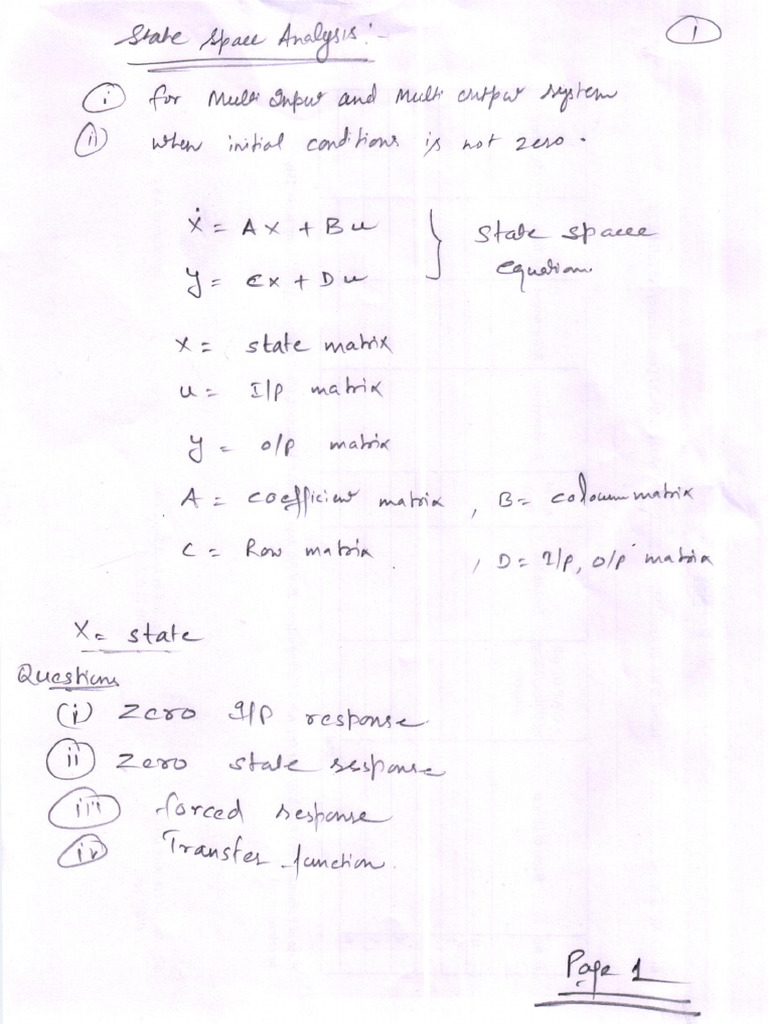 State Space Analysis:-
1
(i) for Multi Input and Multi output system
(ii) when initial conditions is not zero.
ẋ = Ax + Bu
y = Cx + Du
} State space
equation
x = state matrix
u = I/P matrix
y = O/P matrix
A = coefficient matrix , B = coloumn matrix
C = Row matrix , D = I/P, O/P matrix
X = state
Questions
(i) Zero I/P response
(ii) Zero state response
(iii) forced response
(iv) Transfer function.
Page 1